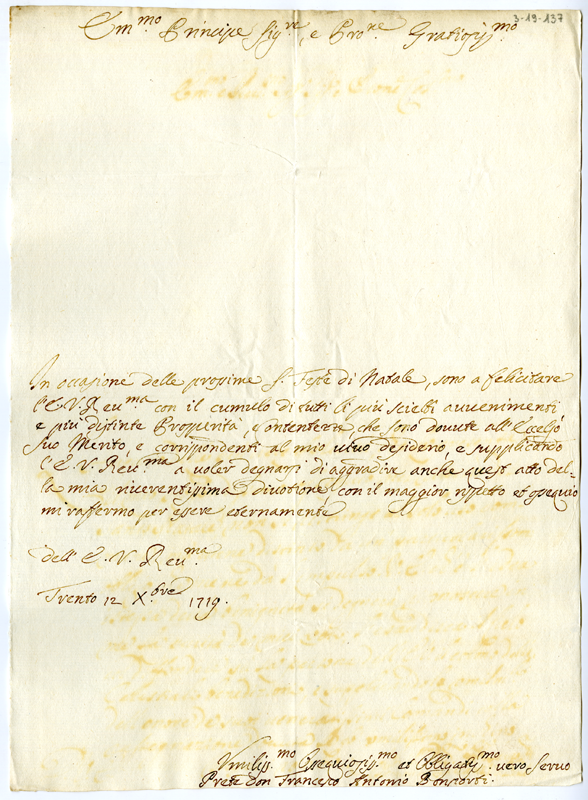 3-19-137
Em.mo Principe Sig.re, e Pro.ne Gratiosiss.mo
In occasione delle prossime S. Feste di Natale, sono a felicitare
l'E. V. Reu.ma con il cumulo di tuti li più scielti auuenimenti
e più distinte Prosperità, e contentezza che sono douute all'Eccelso
suo Merito, e corrispondenti al mio uiuo desiderio, e supplicando
l'E. V. Reu.ma a voler degnarsi di aggradire anche quest'atto del-
la mia riuerentissima diuotione con il maggior rispetto et ossequio
mi raffermo per essere eternamente
dell'E. V. Reu.ma
Trento 12 X.bre 1719.
Vmiliss.mo Ossequiosiss.mo et Obligatiss.mo uero seruo
Prete Don Francesco Antonio Bonporti.